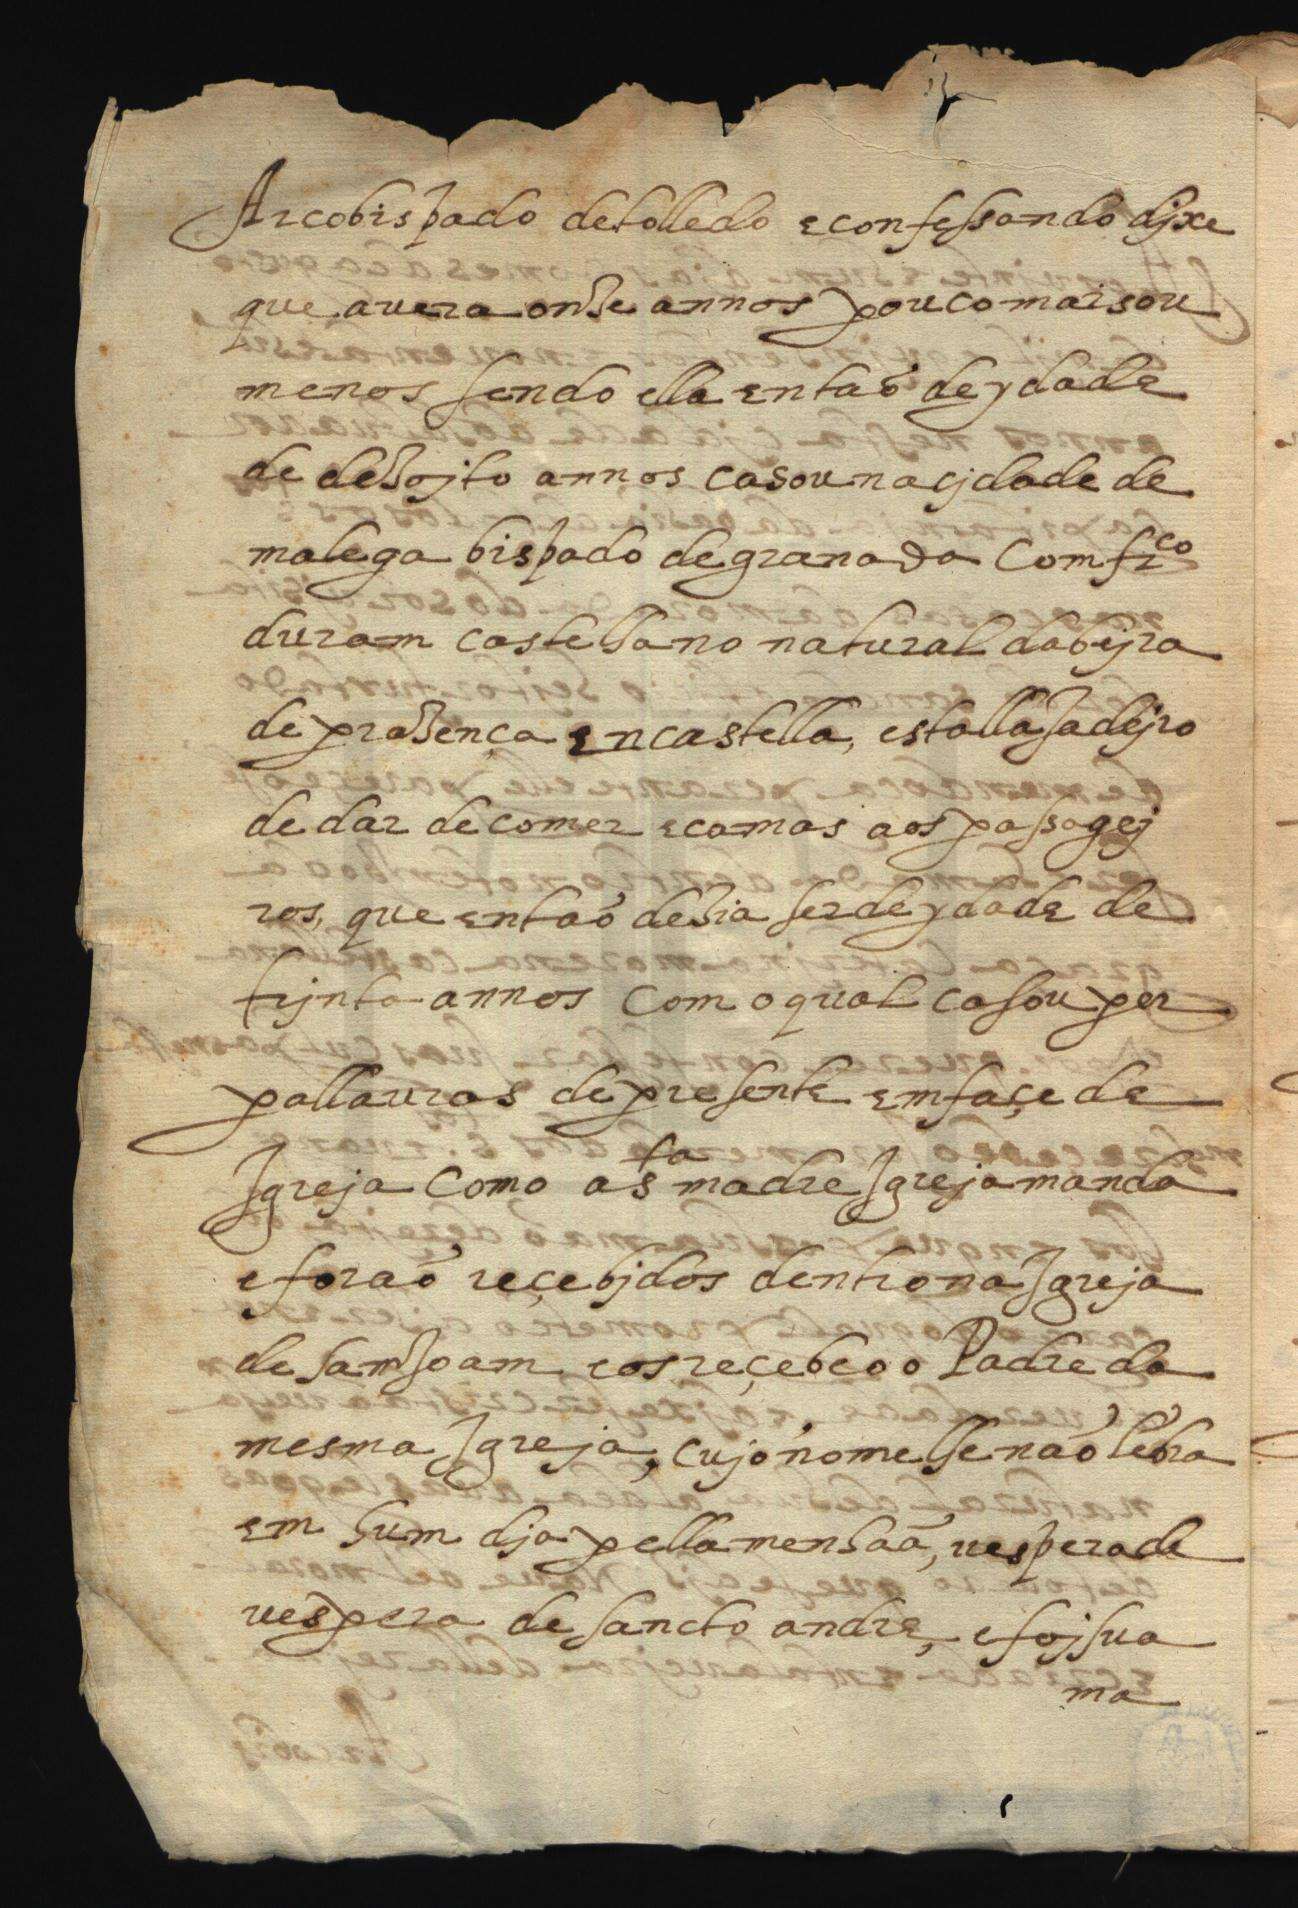 Arcobispado de tolledo e confessando dixe
que avera onze annos pouco mais ou
menos sendo ella entaõ de ydade
de dezojto annos casou na cjdade de
malega bispado de granada Com frco
duram castelhano natural da bejra
de prazença en castella, estallajadejro
de dar de comer e camas aos passagej
ros, que entaõ dezia ser de ydade de
trjnta annos Com o qual casou per
pallavras de presente em façe de
Igreja Como a sta madre Igreja manda
e foraõ reçebjdos dentro na Igreja
de sam Joam, e os reçebeo o Padre da
mesma Igreja, cujo nome lhe naõ lẽbra
em hum dja pella menhaã, vespera de
vespera de sancto andre, e foj sua
ma